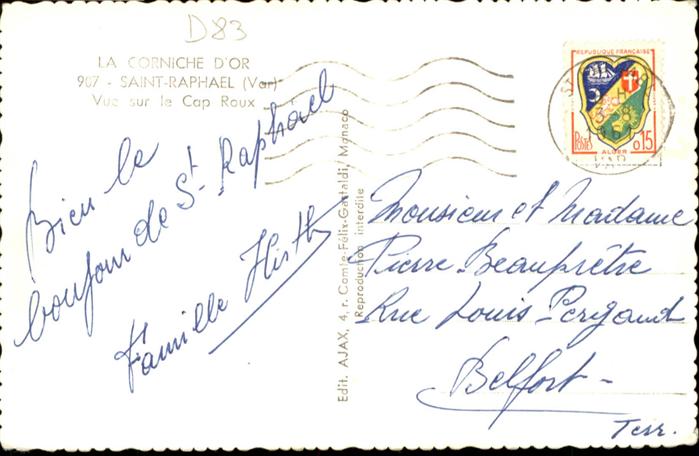 D83
LA CORNICHE D'OR
907 - SAINT-RAPHAEL (Var)
Vue sur le Cap Roux
Bien le
bonjour de St. Raphaël
Famille
Edit. AJAX, 4, r. Comte-Félix-Gastaldi, Monaco
Reproduction interdite
REPUBLIQUE FRANÇAISE
POSTES
0,15
ALGER
VAR
Monsieur et Madame
Pierre Beauprêtre
Rue Louis Pergaud
Belfort -
Terr.